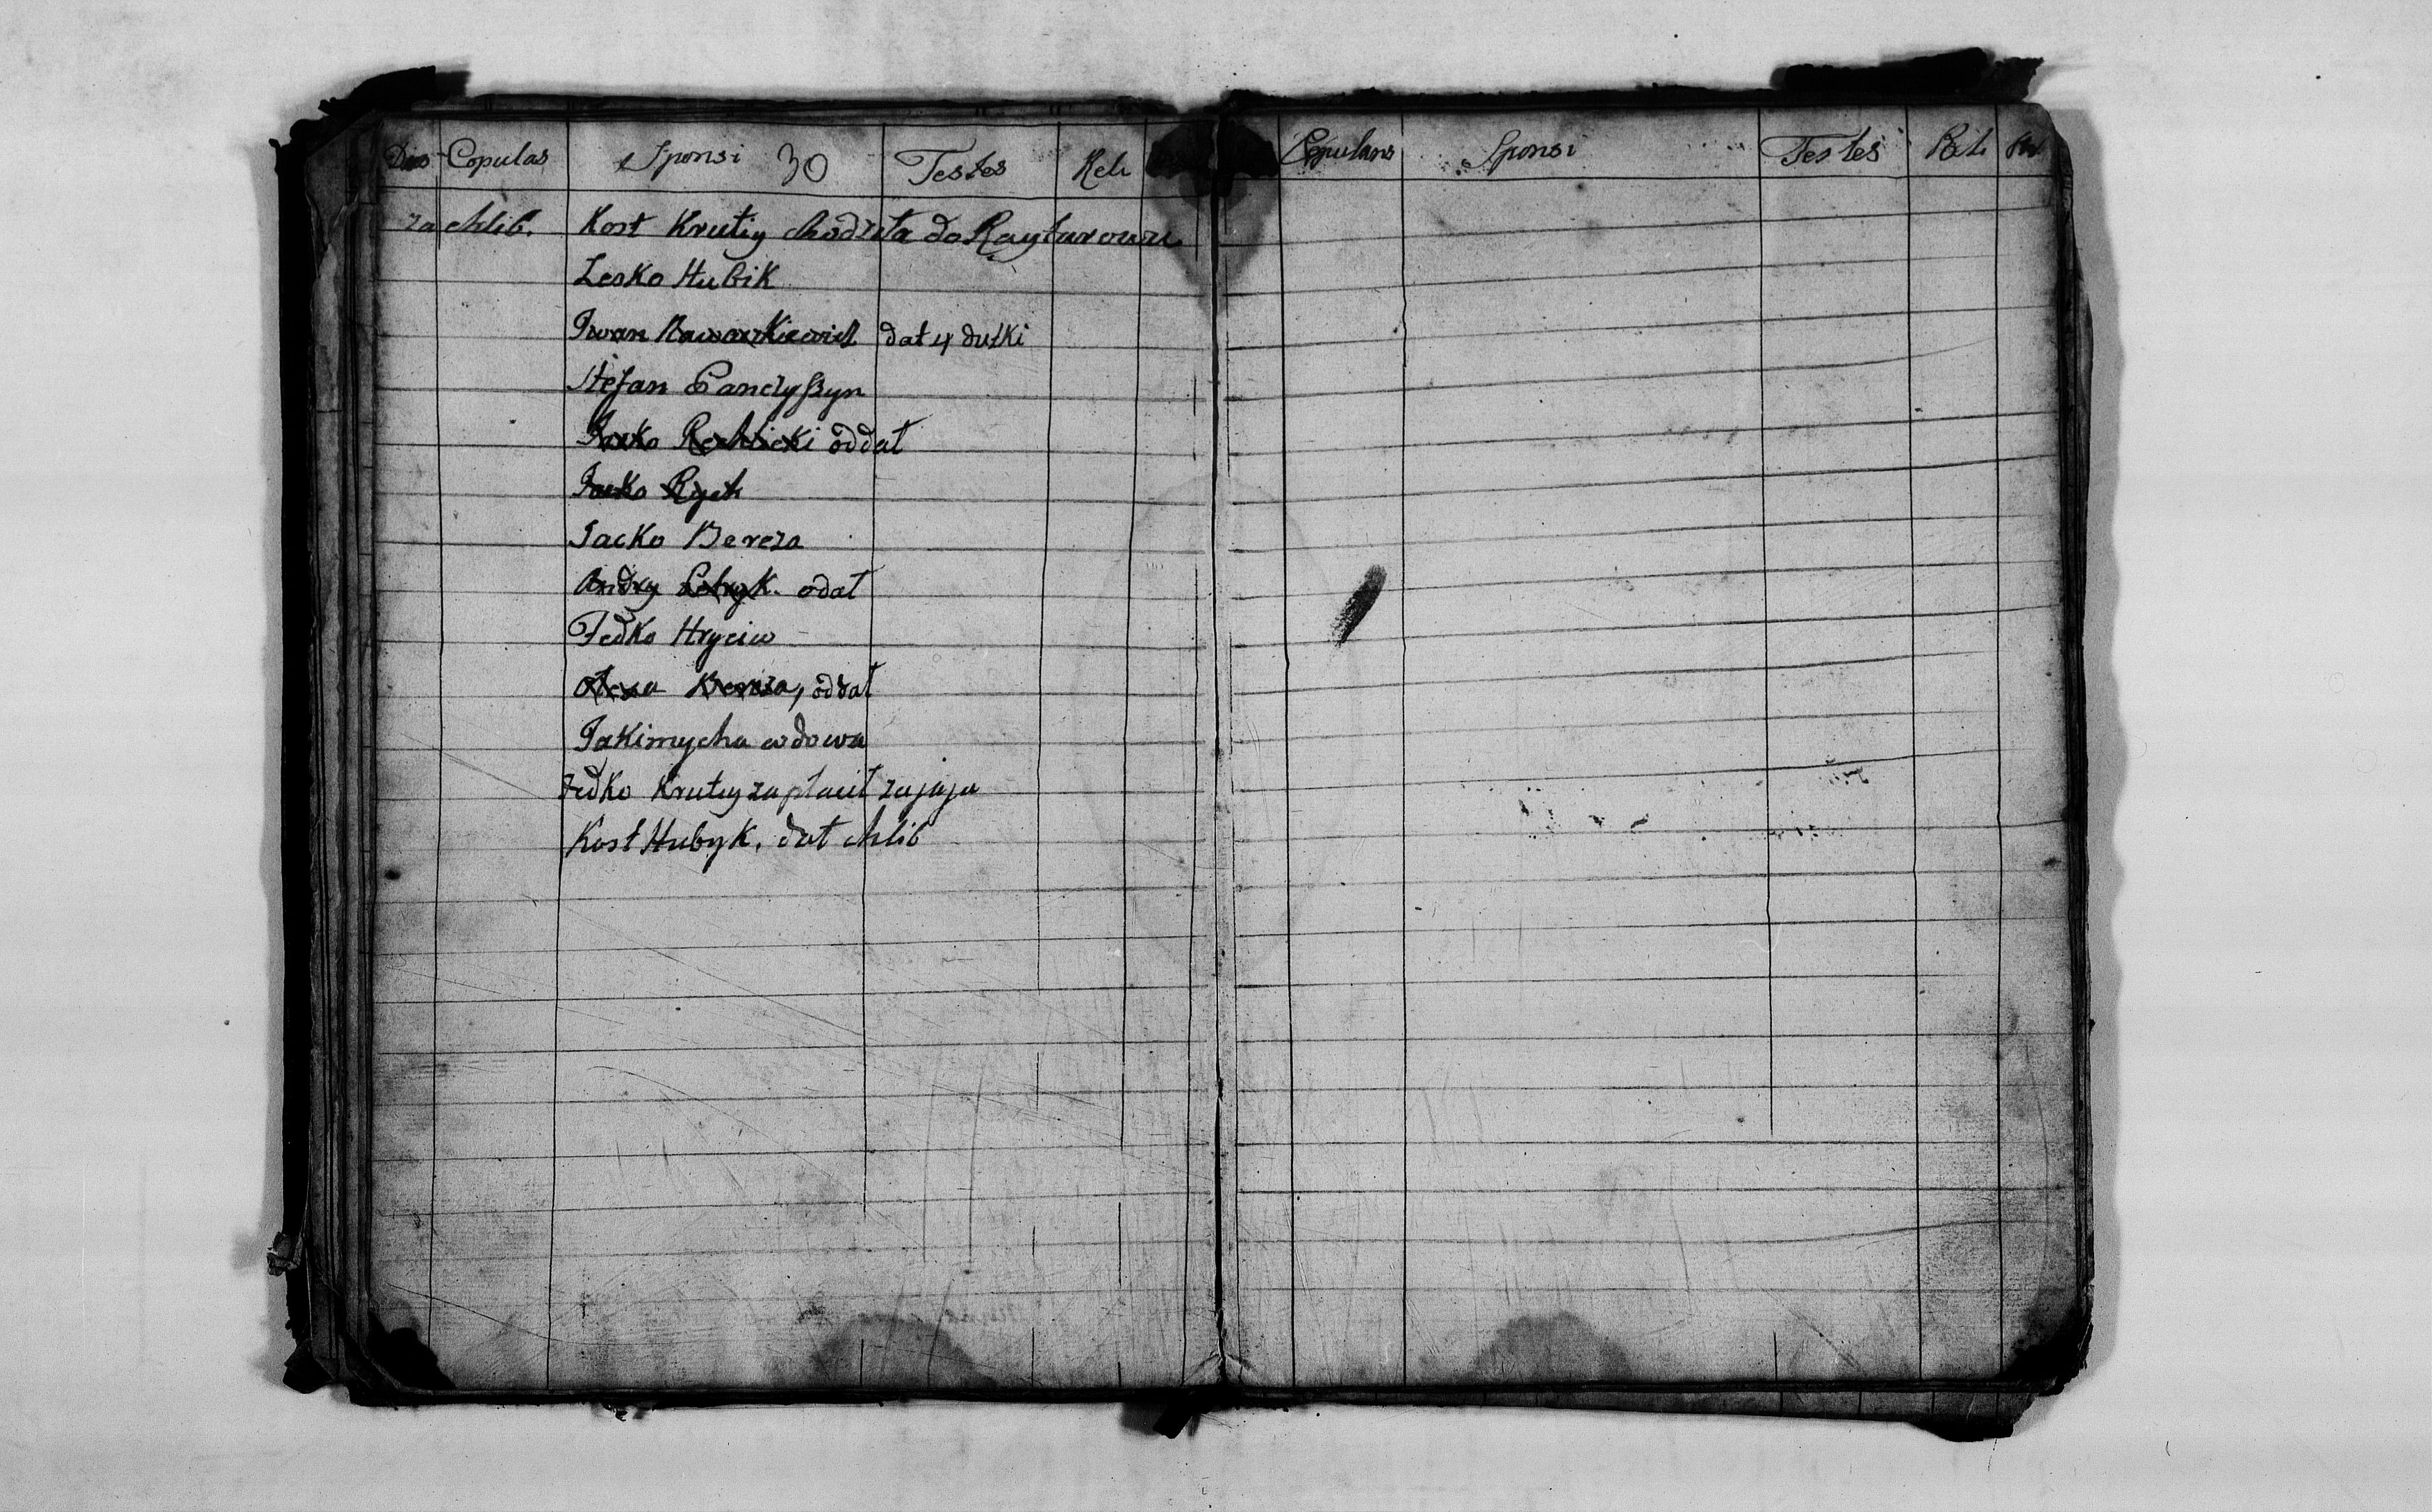 Dies Copulas Sponsi 30 Testes Reli
za chlib. Kost Krutiy chodziła do Raytarowu
Lesko Hubik
Iwan Bawarkiewicz dał 4 dutki
Stefan Panczyszyn
Iwko Rechlicki oddał
Iacko Rych
Iacko Bereza
Andry Petryk. odał
Fedko Hryciw
Olexa Bereza, oddał
Iakimycha wdowa
Fedko Krutiy zapłacił za jaja
Kost Hubyk. dał chlib
Copulans Sponsi Testes Reli